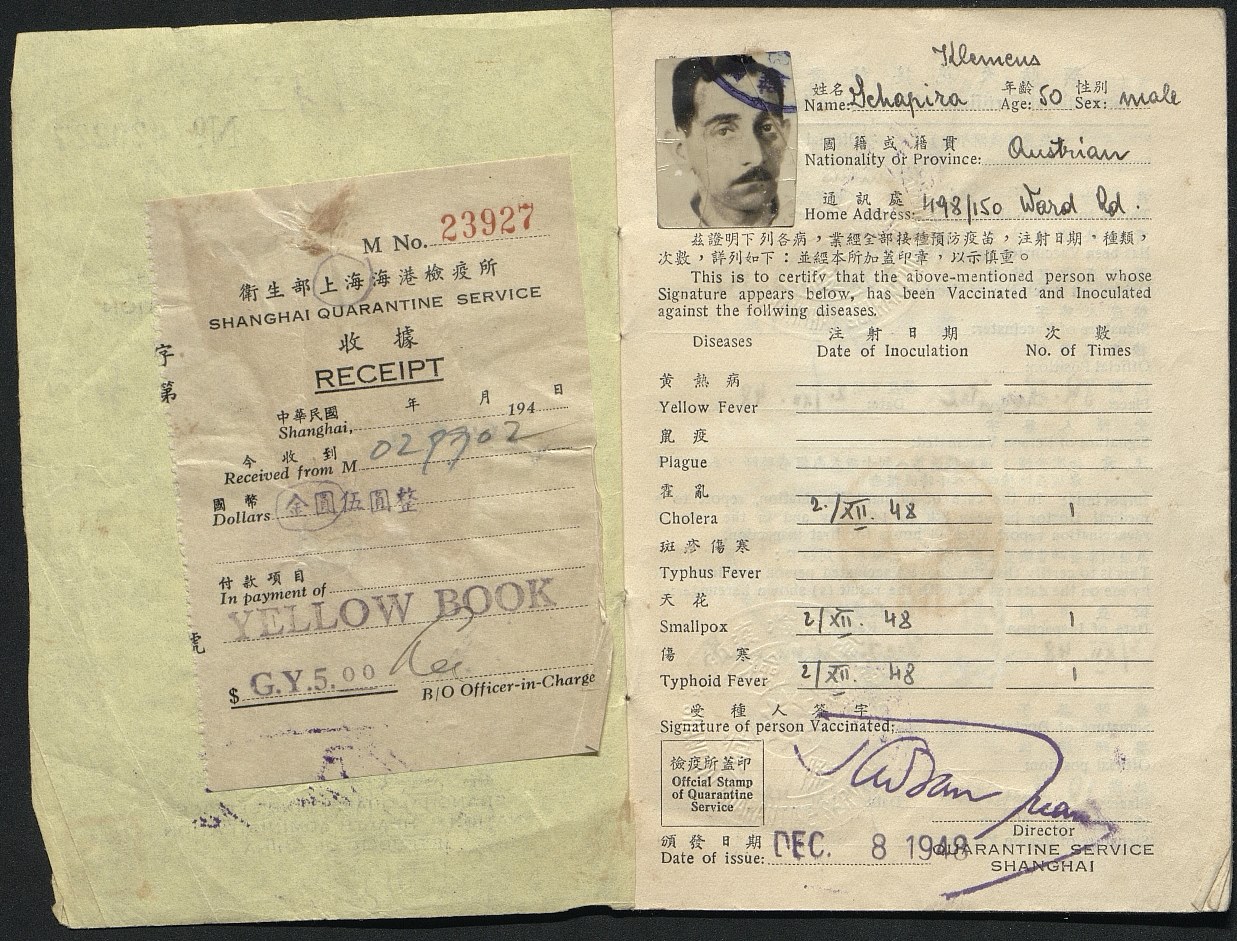 M No. 23927
衛生部上海海港檢疫所
SHANGHAI QUARANTINE SERVICE
收據
RECEIPT
字第
中華民國 年 月 日
Shanghai, 194
今收到
Received from M 029902
國幣
Dollars 金圓伍圓整
付款項目
In payment of
YELLOW BOOK
號
$ G.Y.5.00
B/O Officer-in-Charge
Klemens
姓名 年齡 性別
Name: Schapira Age: 50 Sex: male
國籍或籍貫
Nationality or Province: Austrian
通訊處
Home Address: 498/150 Ward Rd.
茲證明下列各病，業經全部接種預防疫苗，注射日期，種類，
次數，詳列如下：並經本所加蓋印章，以示慎重。
This is to certify that the above-mentioned person whose
Signature appears below, has been Vaccinated and Inoculated
against the follwing diseases.
注射日期 次數
Diseases Date of Inoculation No. of Times
黃熱病
Yellow Fever
鼠疫
Plague
霍亂
Cholera 2./XII. 48 1
斑疹傷寒
Typhus Fever
天花
Smallpox 2/XII. 48 1
傷寒
Typhoid Fever 2/XII. 48 1
受種人簽字
Signature of person Vaccinated:
檢疫所蓋印
Offcial Stamp
of Quarantine
Service
Director
頒發日期
Date of issue: DEC. 8 1948
QUARANTINE SERVICE
SHANGHAI